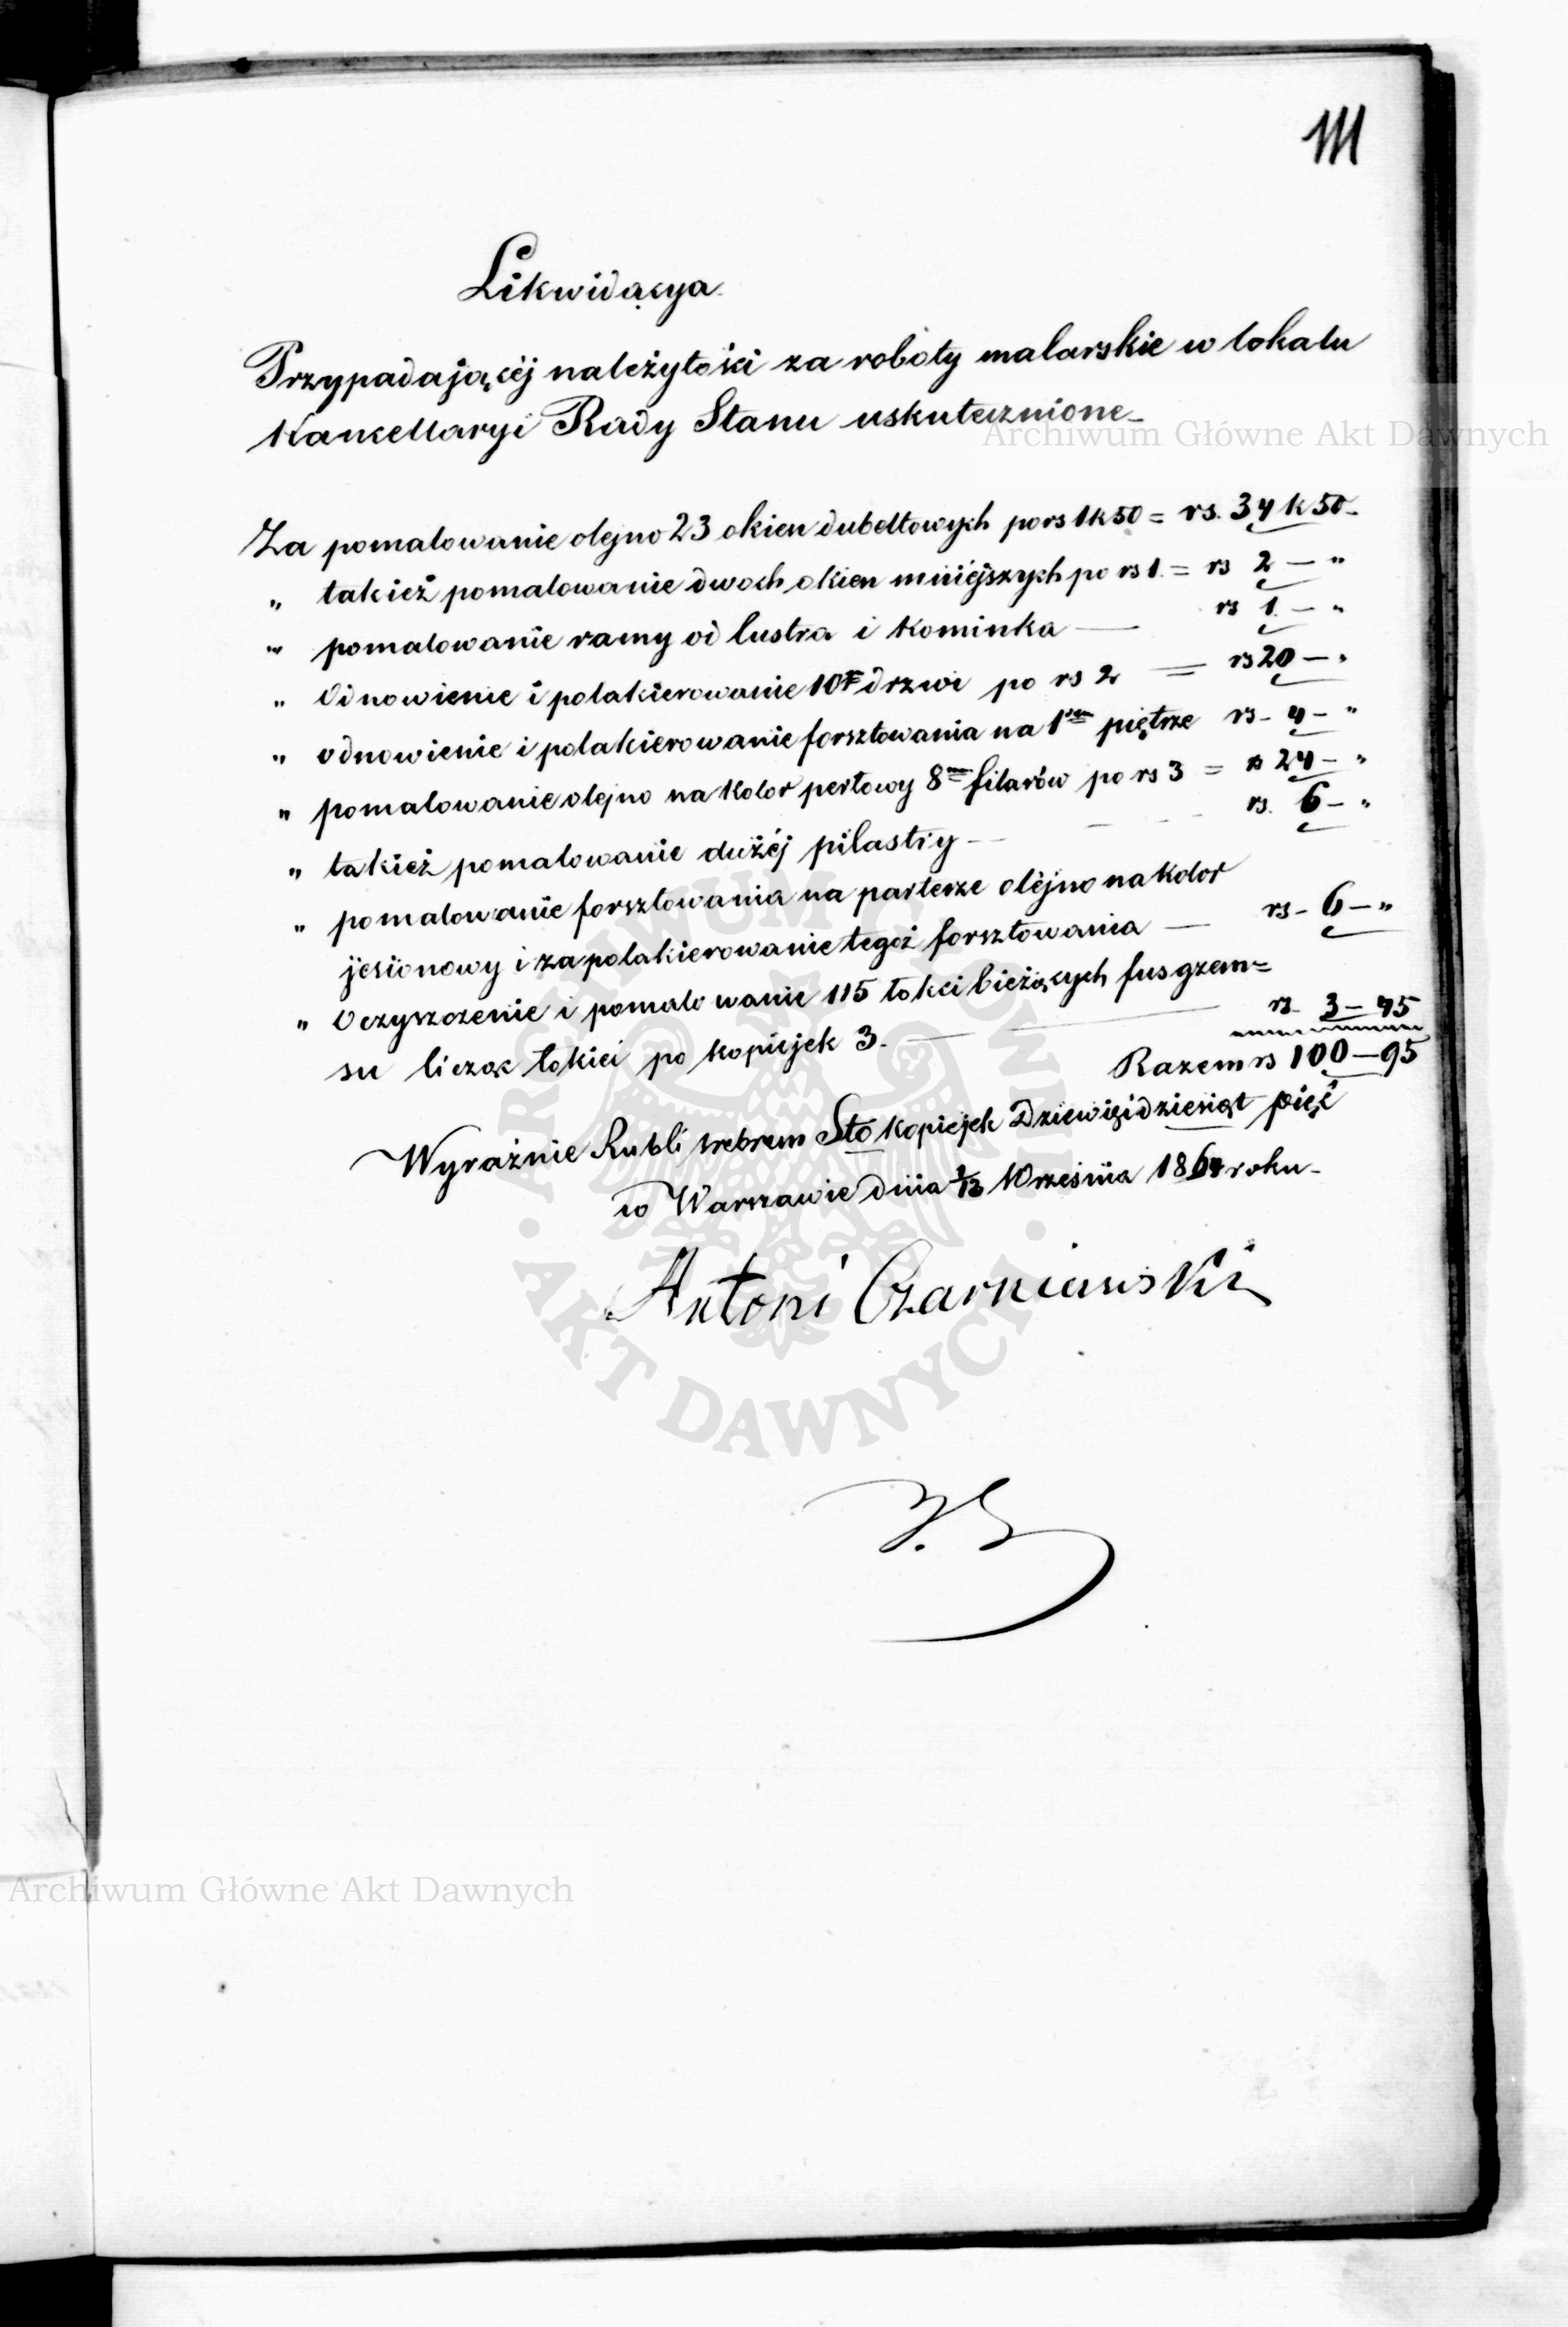 111
Likwidacya
Przypadającéj należytości za roboty malarskie w lokalu
Kancellaryi Rady Stanu uskutecznione
Archiwum Główne Akt Dawnych
Za pomalowanie olejno 23 okien dubeltowych po rs 1 k 50 = rs. 34 k 50
„ takież pomalowanie dwoch okien mniejszych po rs 1. = rs 2 — „
„ pomalowanie ramy od lustra i kominka — rs 1. — „
„ Odnowienie i polakierowanie 10 drzwi po rs 2 = rs 20 — „
„ odnowienie i polakierowanie forsztowania na 1m piętrze rs - 4 - „
„ pomalowanie olejno na kolor perłowy 8m filarów po rs 3 = rs 24 - „
„ takież pomalowanie dużéj pilastry — rs. 6 - „
„ pomalowanie forsztowania na parterze olejno na kolor
jesionowy i zapolakierowanie tegoż forsztowania — rs - 6 - „
„ Oczyszczenie i pomalowanie 115 łokci bieżących fusgzem=
su licząc łokieć po kopiejek 3. — rs. 3 - 45
Razem rs 100 - 95
Wyraźnie Rubli srebrem Sto kopiejek Dziewięćdziesiąt pięć
w Warszawie dnia 1/13 Września 1864 roku
Antoni Czarniawski
ARCHIWUM GŁÓWNE
· AKT DAWNYCH ·
Archiwum Główne Akt Dawnych